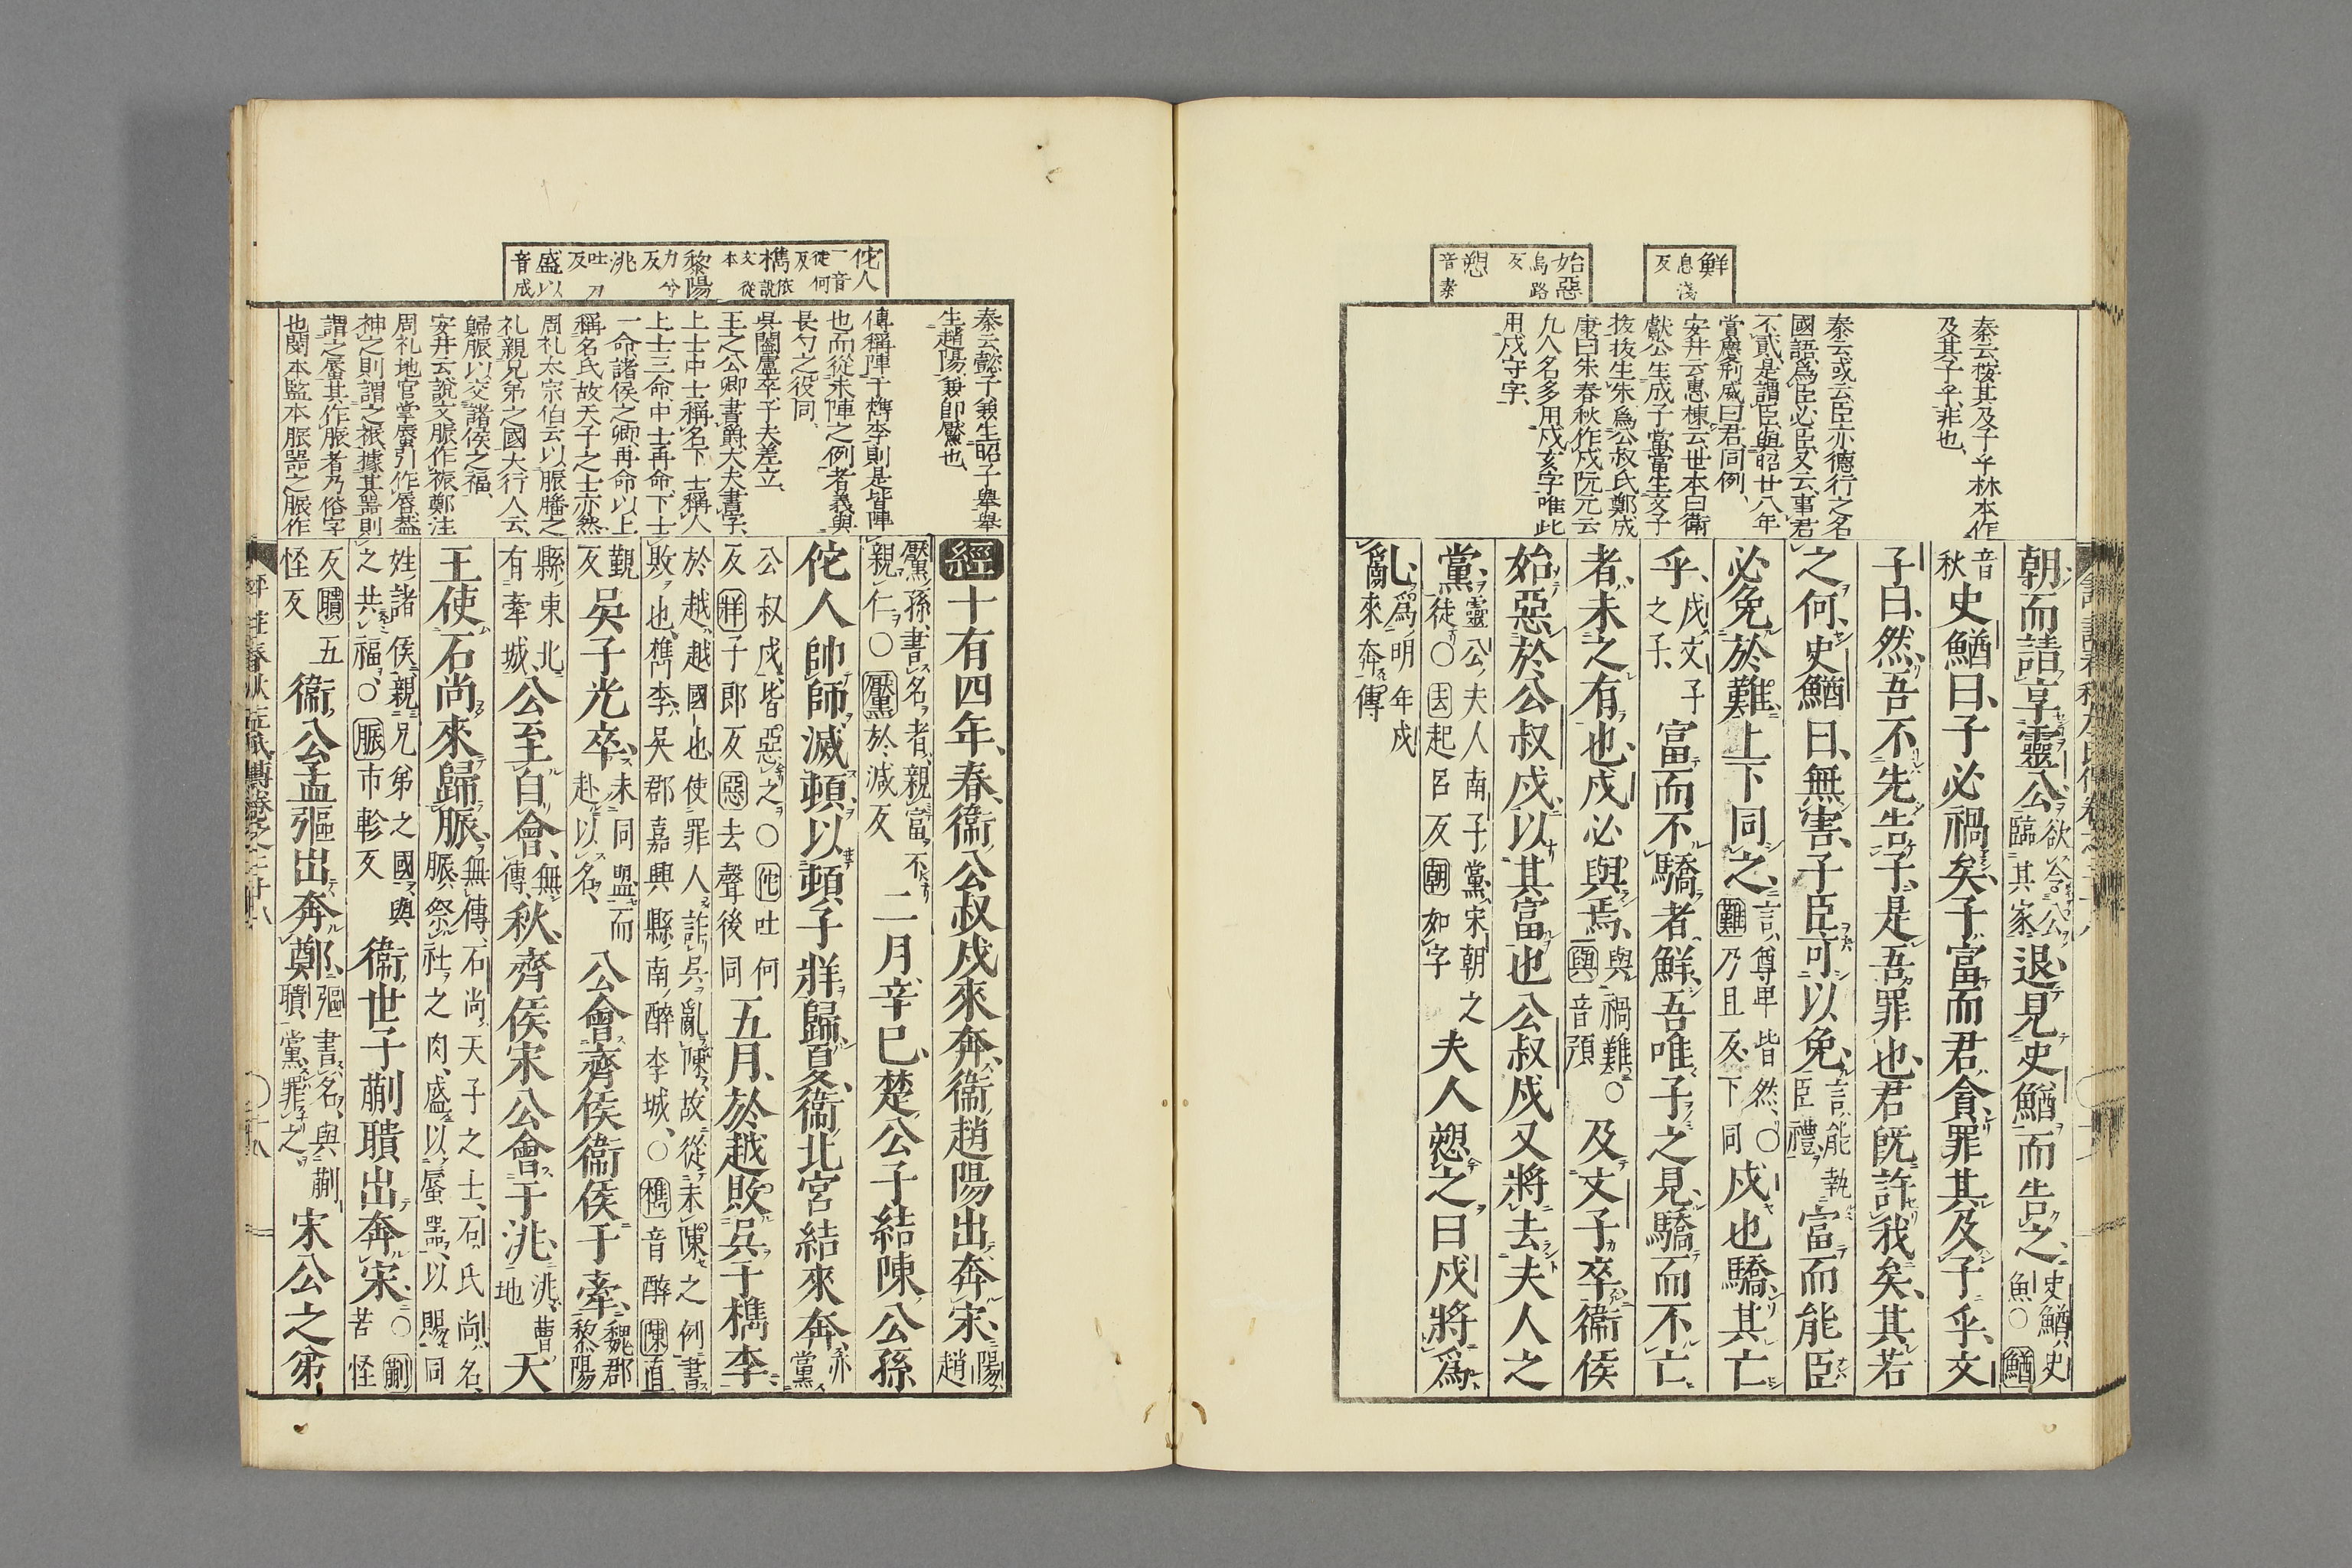 鮮息淺反
始惡烏路反
愬音素
秦云按其及子乎林本作
及其子乎非也
秦云或云臣亦德行之名
國語爲臣必臣又云事君
不貳是謂臣與昭廿八年
賞慶刑威曰君同例
安井云惠棟云世本曰衛
獻公生成子當當生文子
拔拔生朱爲公叔氏鄭成
康曰朱春秋作戍阮元云
九人名多用戍亥字唯此
用戍守字
朝而請享靈公欲令公臨其家退見史鰌而告之史鰌史魚○鰌
音秋史鰌曰子必禍矣子富而君貪罪其及子乎文
子曰然吾不先告子是吾罪也君旣許我矣其若
之何史鰌曰無害子臣可以免言能執臣禮富而能臣
必免於難上下同之言尊卑皆然○難乃且反下同戍也驕其亡
乎戍文子之子富而不驕者鮮吾唯子之見驕而不亡
者未之有也戍必與焉與禍難○與音預及文子卒衛侯
始惡於公叔戍以其富也公叔戍又將去夫人之
黨靈公夫人南子黨宋朝之徒○去起呂反朝如字夫人愬之曰戍將爲
亂爲明年戍奔來傳
佗人一音徒何反
檇依說文從木
黎陽力兮反
洮吐刀反
盛以音成
秦云懿子兼生昭子舉舉
生趙陽兼卽黶也
傳稱陣于檇李則是皆陣
也而從未陣之例者義與
長勺之役同
吳闔廬卒子夫差立
王之公卿書爵大夫書字
上士中士稱名下士稱人
上士三命中士再命下士
一命諸侯之卿再命以上
稱名氏故天子之士亦然
周礼大宗伯云以脤膰之
礼親兄弟之國大行人云
歸脤以交諸侯之福
安井云說文脤作祳鄭注
周礼地官掌蜃引作蜃蓋
神之則謂之祳據其器則
謂之蜃其作脤者乃俗字
也閩本監本脤器之脤作
經十有四年春衛公叔戍來奔衛趙陽出奔宋陽趙
黶孫書名者親富不親仁○黶於減反二月辛巳楚公子結陳公孫
佗人帥師滅頓以頓子牂歸夏衛北宮結來奔亦黨
公叔戍皆惡之○佗吐何反牂子郎反惡去聲後同五月於越敗吳于檇李
於越越國也使罪人詐吳亂陳故從未陳之例書敗也檇李吳郡嘉興縣南醉李城○檇音醉陳直
覲反吳子光卒未同盟而赴以名公會齊侯衛侯于牽魏郡黎陽
縣東北有牽城公至自會無傳秋齊侯宋公會于洮洮曹地天
王使石尚來歸脤無傳石尚天子之士石氏尚名脤祭社之肉盛以蜃器以賜同
姓諸侯親兄弟之國與之共福○脤市軫反衛世子蒯聵出奔宋○蒯苦怪
反聵五怪反衛公孟彄出奔鄭彄書名與蒯聵黨罪之宋公之弟